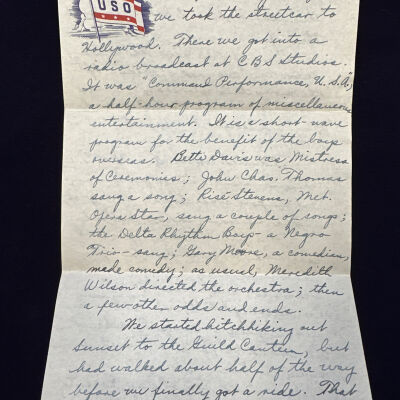 USO
we took the streetcar to
Hollywood. There we got into a
radio broadcast at CBS Studios.
It was "Command Performance, U.S.A.",
a half-hour program of miscellaneous
entertainment. It is a short-wave
program for the benefit of the boys
overseas. Bette Davis was Mistress
of Ceremonies; John Chas. Thomas
sang a song; Risë Stevens, Met.
Opera Star, sang a couple of songs;
the Delta Rhythm Boys - a Negro
Trio - sang; Gary Moore, a comedian,
made comedy; as usual, Meredith
Wilson directed the orchestra; then
a few other odds and ends.
We started hitchhiking out
Sunset to the Guild Canteen, but
had walked about half of the way
before we finally got a ride. That